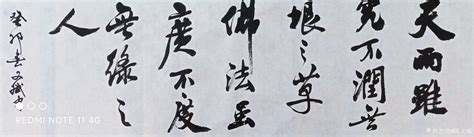 天雨雖
宽不潤無
根之草
佛法虽
廣不度
無緣之
人
癸卯
REDMI NOTE 11 4G